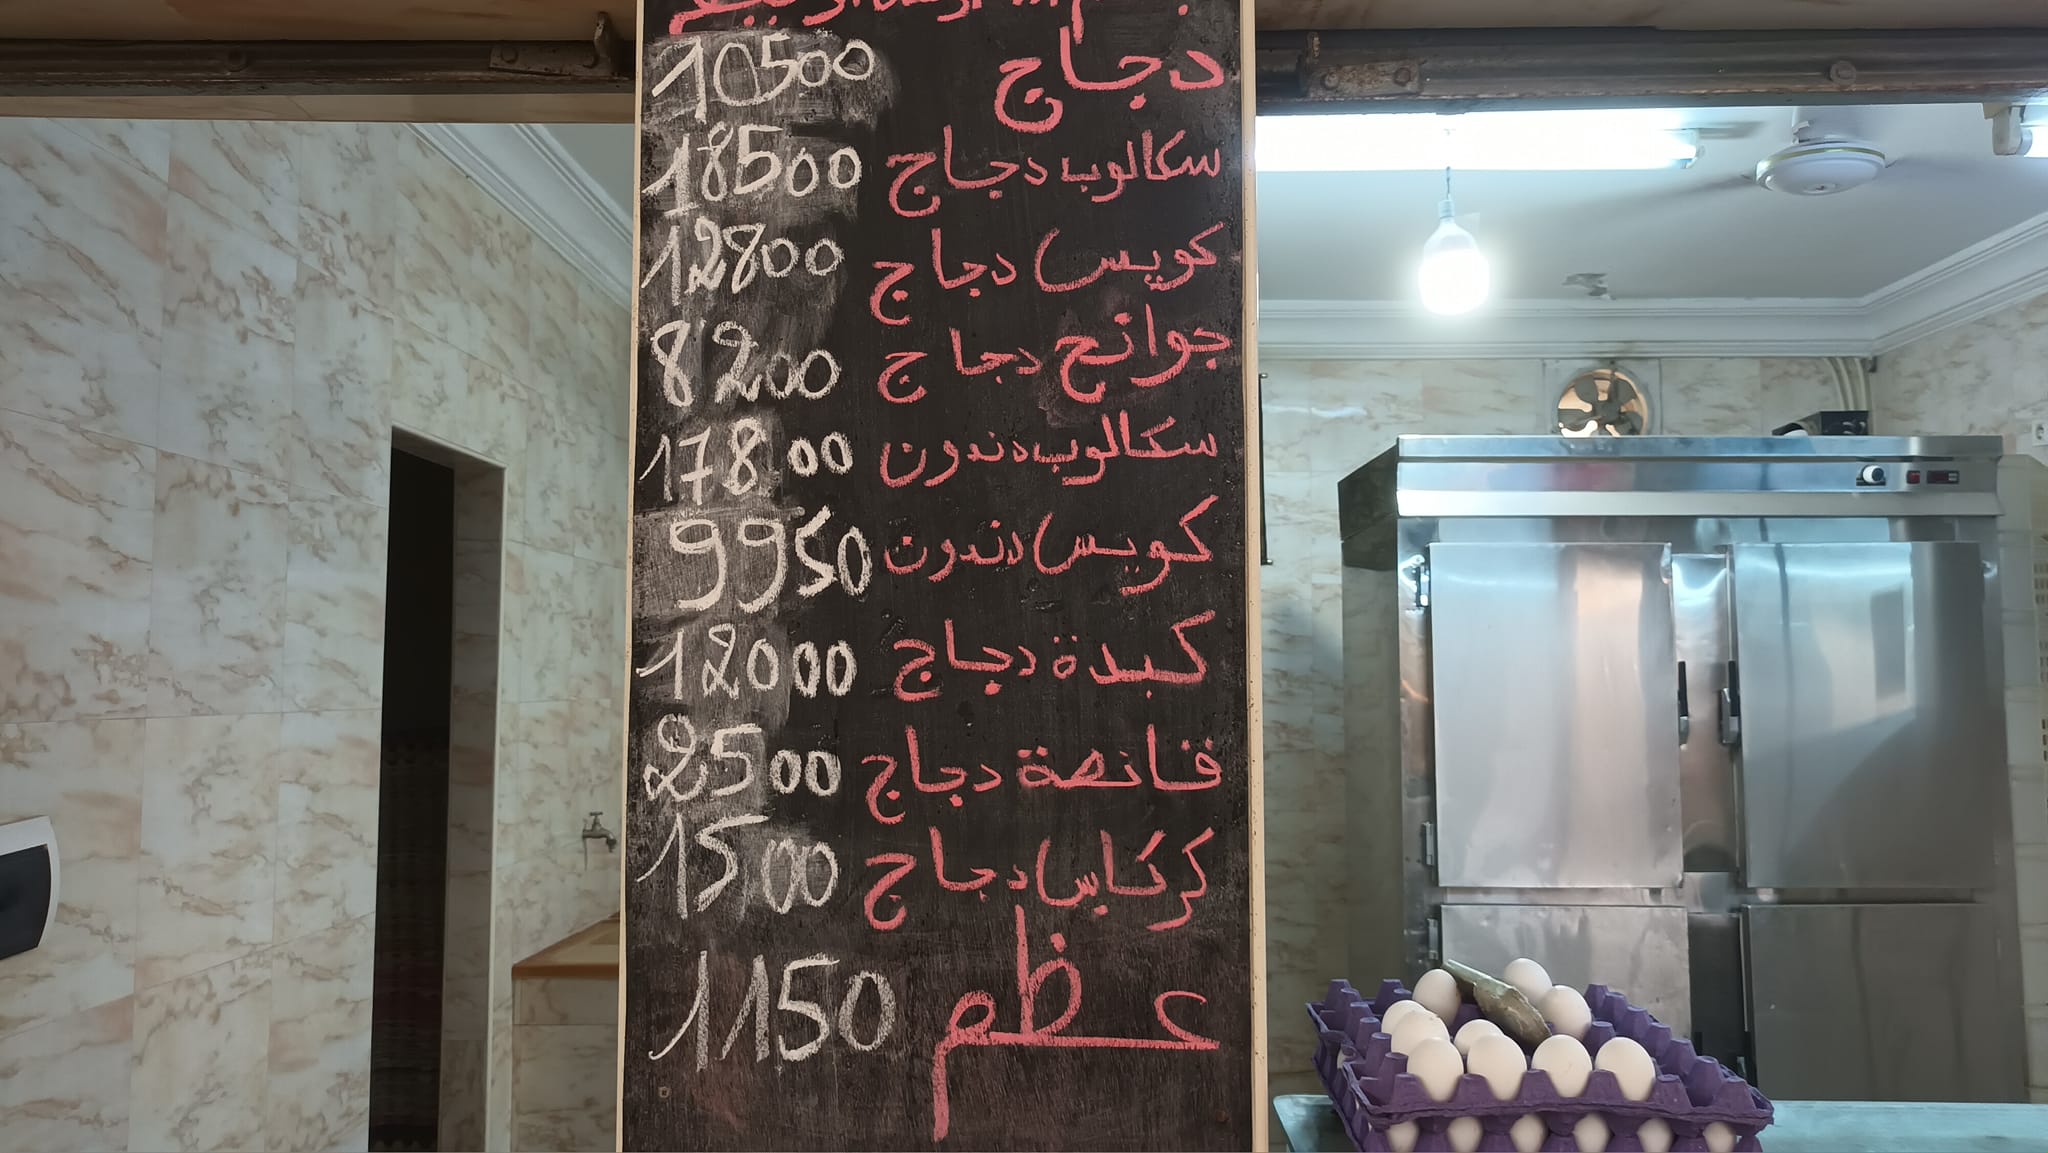 دجاج 10500
سكالوب دجاج 18500
كويس دجاج 12800
جوانح دجاج 8200
سكالوب دندون 17800
كويس دندون 9950
كبدة دجاج 12000
قانصة دجاج 2500
كركاس دجاج 1500
عظم 1150